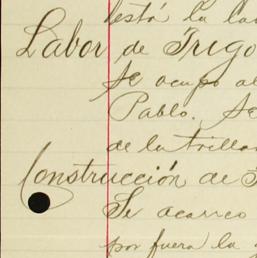 está la la
Labor de Trigo
Se ocupo al
Pablo. Se
de la trilla
Construcción de
Se acarreo
por fuera la